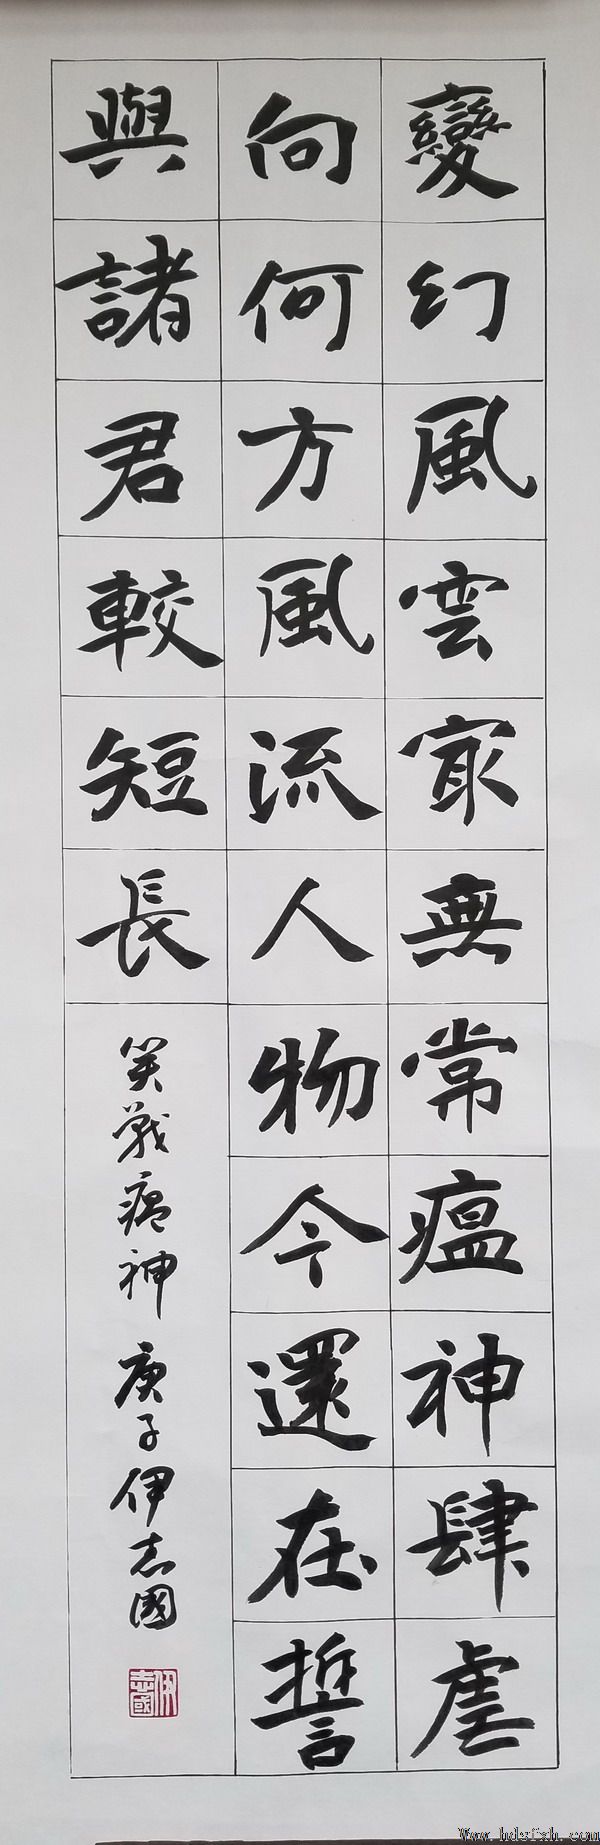 變幻風雲寂無常瘟神肆虐
向何方風流人物今還在誓
與諸君較短長
笑戰瘟神 庚子伊志國
伊志國
www.hdsfxh.com